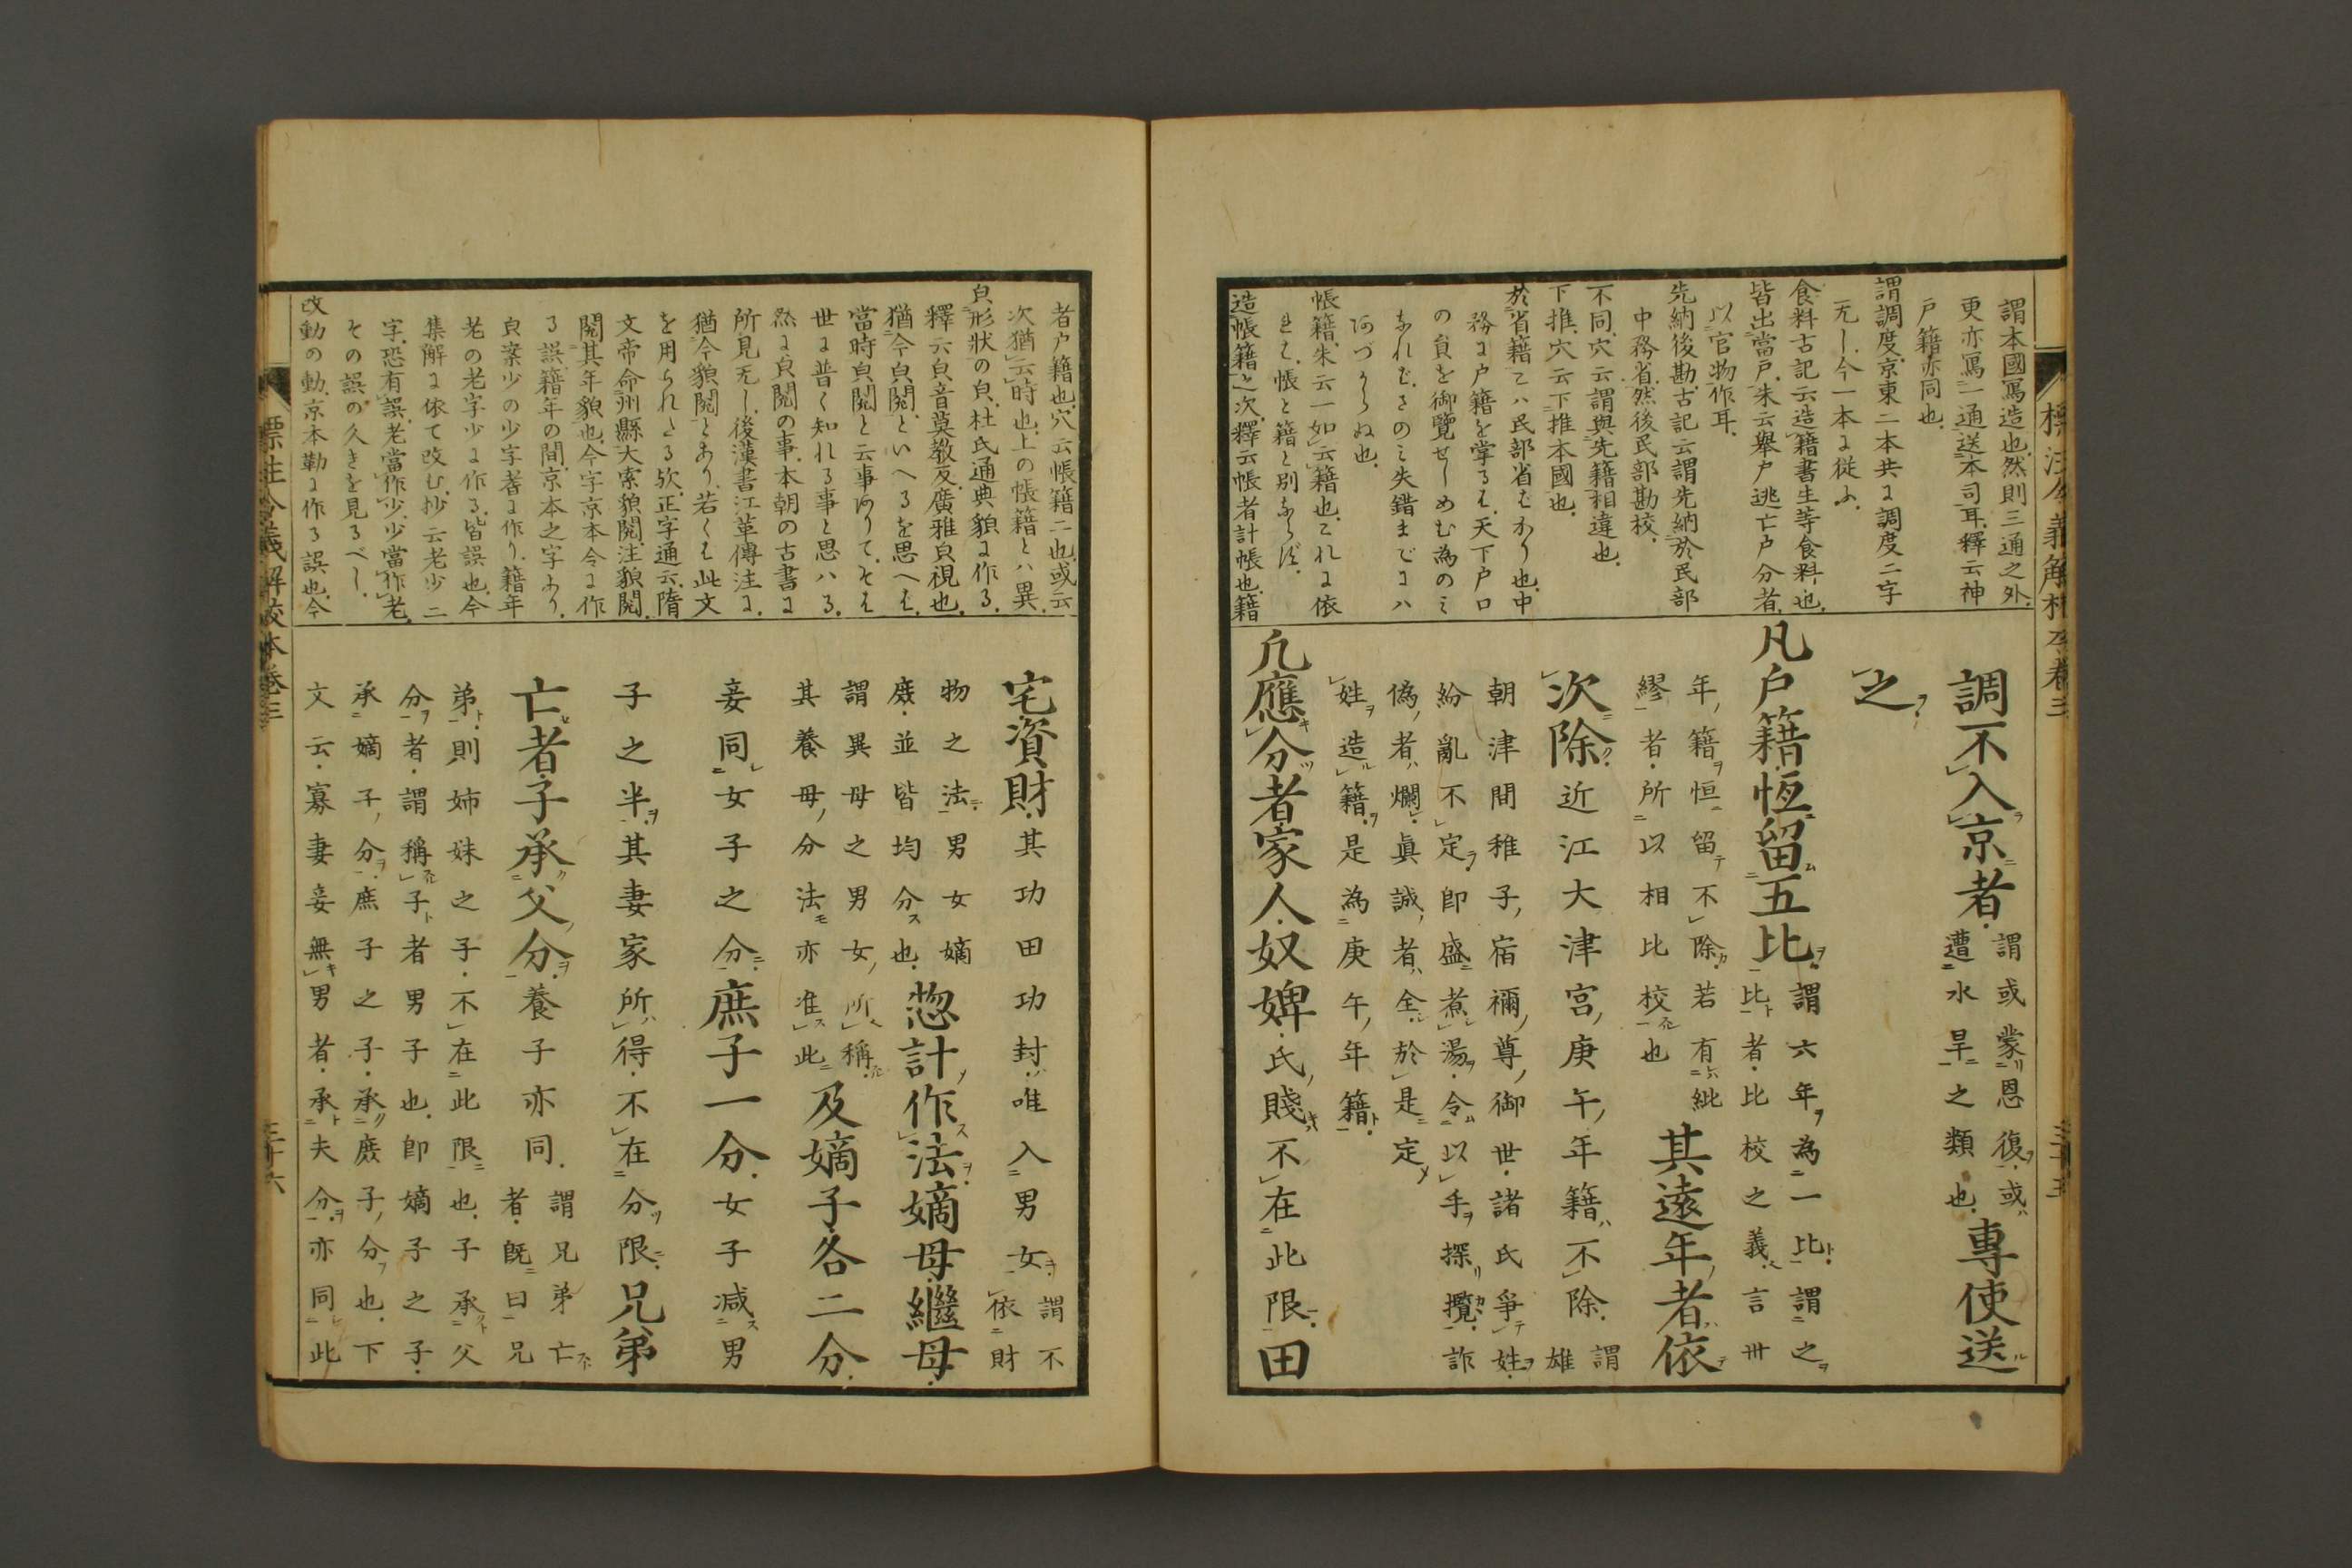 謂本國寫造也然則三通之外
更亦寫一通送本司耳釋云神
戸籍亦同也
謂調度京東二本共に調度二字
无し今一本に従ふ
食料古記云造籍書生等食料也
皆出當戸朱云舉戸逃亡戸分者
以官物作耳
先納後勘古記云謂先納於民部
中務省然後民部勘校
不同穴云謂與先籍相違也
下推穴云下推本國也
於省籍こハ民部省なり也中
務に戸籍を掌るハ天下戸口
の負を御覽せしめむ為のミ
帳籍朱云一如云籍也これに依
れハ帳と籍と別ならず
造帳籍之次釋云帳者計帳也籍
調不入京者謂或蒙恩復或
遭水旱之類也專使送
之
凡戸籍恆留五比謂六年為一比謂之
比者比校之義言卅
年籍恒留不除若有紕
繆者所以相比校也其遠年者依
次除近江大津宮庚午年籍不除謂
雄
朝津間稚子宿禰尊御世諸氏爭姓
紛亂不定即盛煮湯令以手探攬詐
偽者爛真誠者全於是定
姓造籍是為庚午年籍
凡應分者家人奴婢氏賤不在此限田
者戸籍也穴云帳籍二也或云
次猶云時也上の帳籍とハ異
皃形状の皃杜氏通典貌に作る
釋云皃音莫教反廣雅皃視也
猶今皃閲といへるを思へは
當時皃閲と云事ありて
世に普く知れる事と思ハる
然に皃閲の事本朝の古書に
所見无し後漢書江革傳注に
猶今貌閲とあり若くは此文
を用られたる歟正字通云隋
文帝命州縣大索貌閲注貌閲
閲其年貌也今字京本令に作
る誤籍年の間京本之字あり
皃案少の少字者に作り籍年
老の老字少に作る皆誤也今
集解に依て改む抄云老少二
字恐有誤老當作少少當作老
その誤の久きを見るべし
改動の動京本勤に作る誤也今
宅資財其功田功封唯入男女謂不
依財
物之法男女嫡
庶並皆均分也惣計作法嫡母繼母
謂異母之男女所稱
其養母分法亦准此及嫡子各二分
妾同女子之分庶子一分女子減男
子之半其妻家所得不在分限兄弟
亡者子承父分養子亦同謂兄弟亡
者既曰兄
弟則姉妹之子不在此限也子承父
分者謂稱子者男子也即嫡子之子
承嫡子分庶子之子承庶子分也下
文云寡妻妾無男者承夫分亦同此